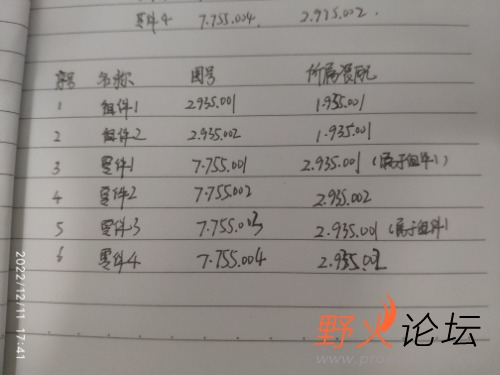 零件4 7.755.004 2.935.002.
序号 名称 图号 所属装配
1 组件1 2.935.001 1.935.001
2 组件2 2.935.002 1.935.001
3 零件1 7.755.001 2.935.001 (属于组件1)
4 零件2 7.755.002 2.935.002
5 零件3 7.755.003 2.935.001 (属于组件1
6 零件4 7.755.004 2.935.002
2022/12/11 17:41
野火论坛